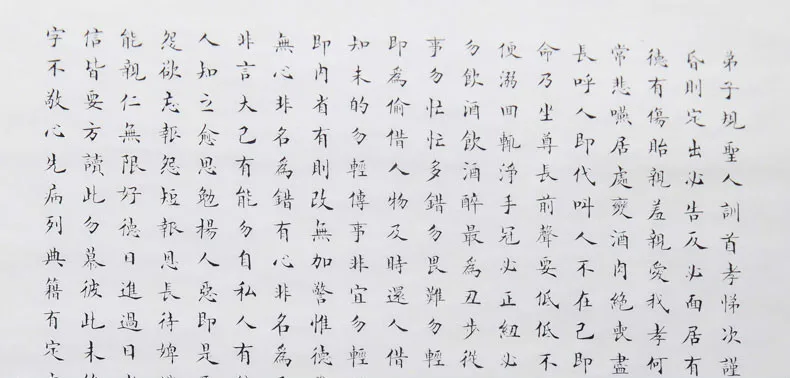 弟子規聖人訓首孝悌次謹
昏則定出必告反必面居有
德有傷胎親羞親愛我孝何
常悲嚥居處變酒肉絕喪盡
長呼人即代叫人不在己即
命乃坐尊長前聲要低低不
便溺回輒淨手冠必正紐必
勿飲酒飲酒醉最為丑步從
事勿忙忙多錯勿畏難勿輕
即為偷借人物及時還人借
知未的勿輕傳事非宜勿輕
即內省有則改無加警惟德
無心非名為錯有心非名為
非言大己有能勿自私人有
人知之愈思勉揚人惡即是
怨欲忘報怨短報恩長待婢
能親仁無限好德日進過日
信皆要方讀此勿慕彼此未
字不敬心先病列典籍有定